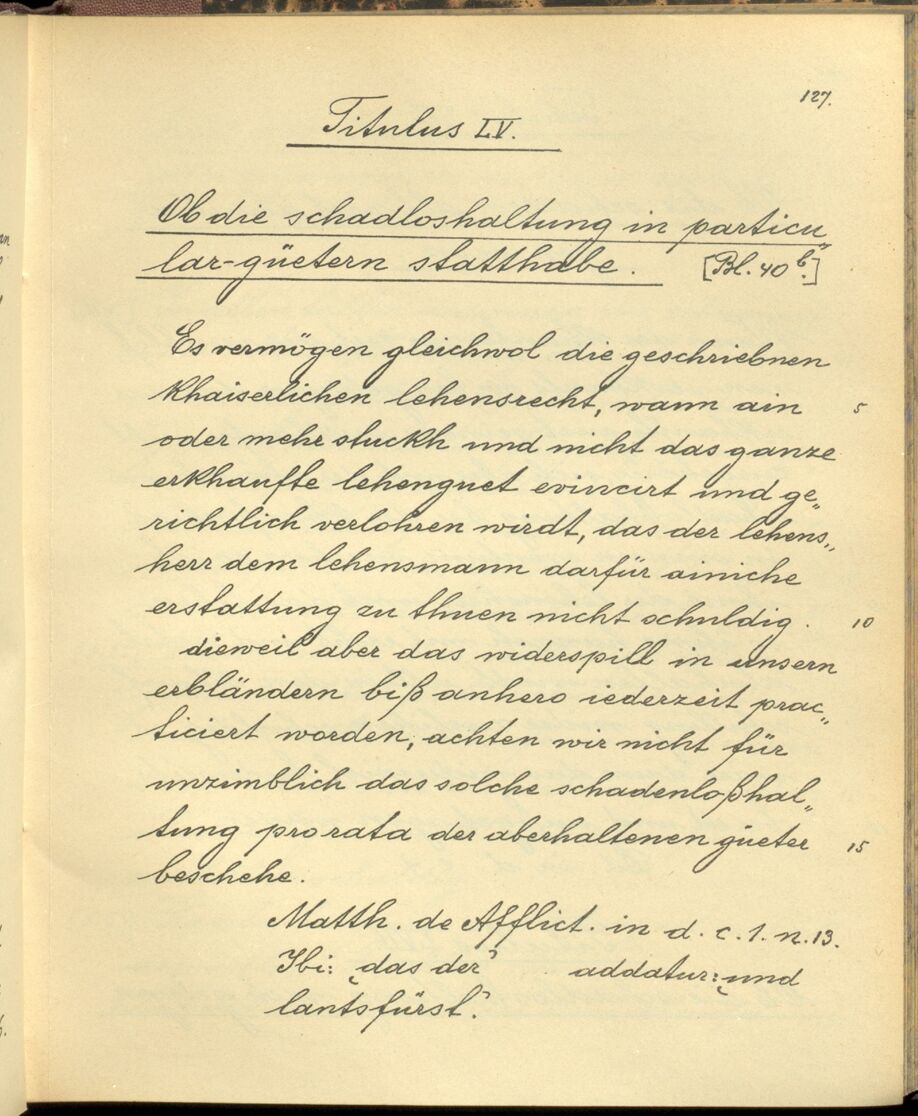 127.
Titulus LV.
Ob die schadloshaltung in particu„
lar-güetern statthabe. [Bl. 40 b.]
Es vermögen gleichwol die geschriebnen
khaiserlichen lehensrecht, wann ain 5
oder mehr stuckh und nicht das ganze
erkhaufte lehenguet evincirt und ge„
richtlich verlohren wirdt, das der lehens„
herr dem lehensmann darfür ainiche
erstattung zu thuen nicht schuldig. 10
dieweil aber das widerspill in unsern
erbländern biß anhero iederzeit prac„
ticiert worden, achten wir nicht für
unzimblich das solche schadenloßhal„
tung pro rata der aberhaltenen güeter 15
beschehe.
Matth. de Afflict. in d. c. 1. n. 13.
Ibi: ‚das der’ addatur: ‚und
lantsfürst.’